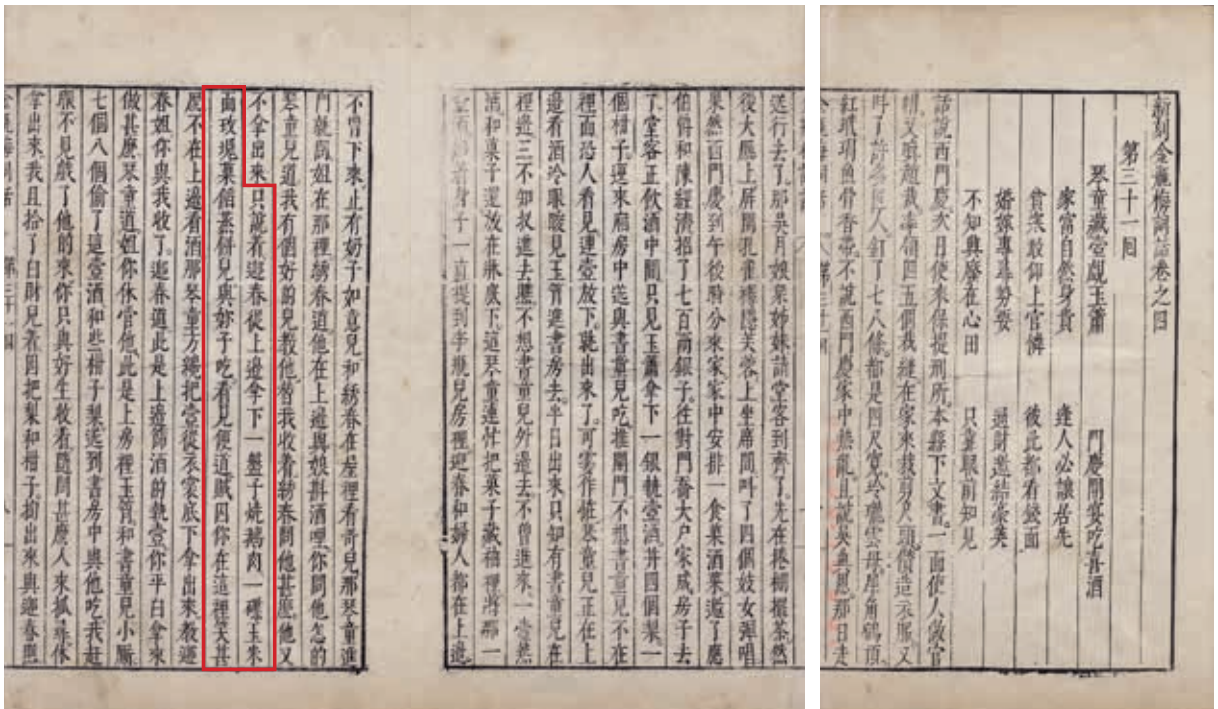 新刻金瓶梅詞話卷之四
第三十一回
琴童藏壺覷玉簫　門慶開宴吃喜酒
家富自然身貴　逢人必讓居先
貧寒敢仰上官憐　彼此都看錢面
婚嫁專尋勢要　通財邀結豪英
不知興廢在心田　只靠眼前知見
話說西門慶次日使來保提刑所本縣下文書一面使人做官
帽又喚趙裁率領四五個裁縫在家來裁剪尺頭攢造衣服又
叫了許多匠人釘了七八條都是四尺寬玲瓏雲母犀角鶴頂
紅玳瑁魚骨香帶不說西門慶家中熱亂且說吳典恩那日走
送行去了那吳月娘眾姊妹請堂客到齊了先在捲棚擺茶然
後大廳上屏開孔雀褥隱芙蓉上坐席間叫了四個妓女彈唱
果然西門慶到午後時分來家家中安排一食盒酒菜邀了應
伯爵和陳經濟招了七百兩銀子往對門喬大戶家成房子去
了堂客正飲酒中間只見玉簫拿下一銀執壺酒并四個梨一
個柑子逕來廂房中送與書童兒吃推開門不想書童兒不在
裡面恐人看見連壺放下就出來了可霎作怪琴童兒正在上
邊看酒冷眼睃見玉簫進書房去半日出來只知有書童兒在
裡邊三不知扠進去瞧不想書童兒外邊去不曾進來一壺熱
酒和菓子還放在床底下這琴童連忙把菓子藏袖裡將那一
壺酒影着身子一直提到李瓶兒房裡迎春和婦人都在上邊
不曾下來止有奶子如意兒和綉春在屋裡看哥兒那琴童進
門就問姐在那裡綉春道他在上邊與娘斟酒哩你問他怎的
琴童兒道我有個好的兒教他替我收着綉春問他甚麼他又
不拿出來只說着迎春從上邊拿下一盤子燒鵝肉一碟玉米
面玫瑰菓餡蒸餅兒與奶子吃看見便道賊囚你在這裡笑甚
麼不在上邊看酒那琴童方纔把壺從衣裳底下拿出來教迎
春姐你與我收了迎春道此是上邊篩酒的執壺你平白拿來
做甚麼琴童道姐你休官他此是上房裡玉簫和書童兒小廝
七個八個偷了這壺酒和些柑子梨送到書房中與他吃我赶
眼不見戲了他的來你只與好生收着隨問甚麼人來抓尋休
拿出來我且拾了白財兒着因把梨和柑子掏出來與迎春瞧